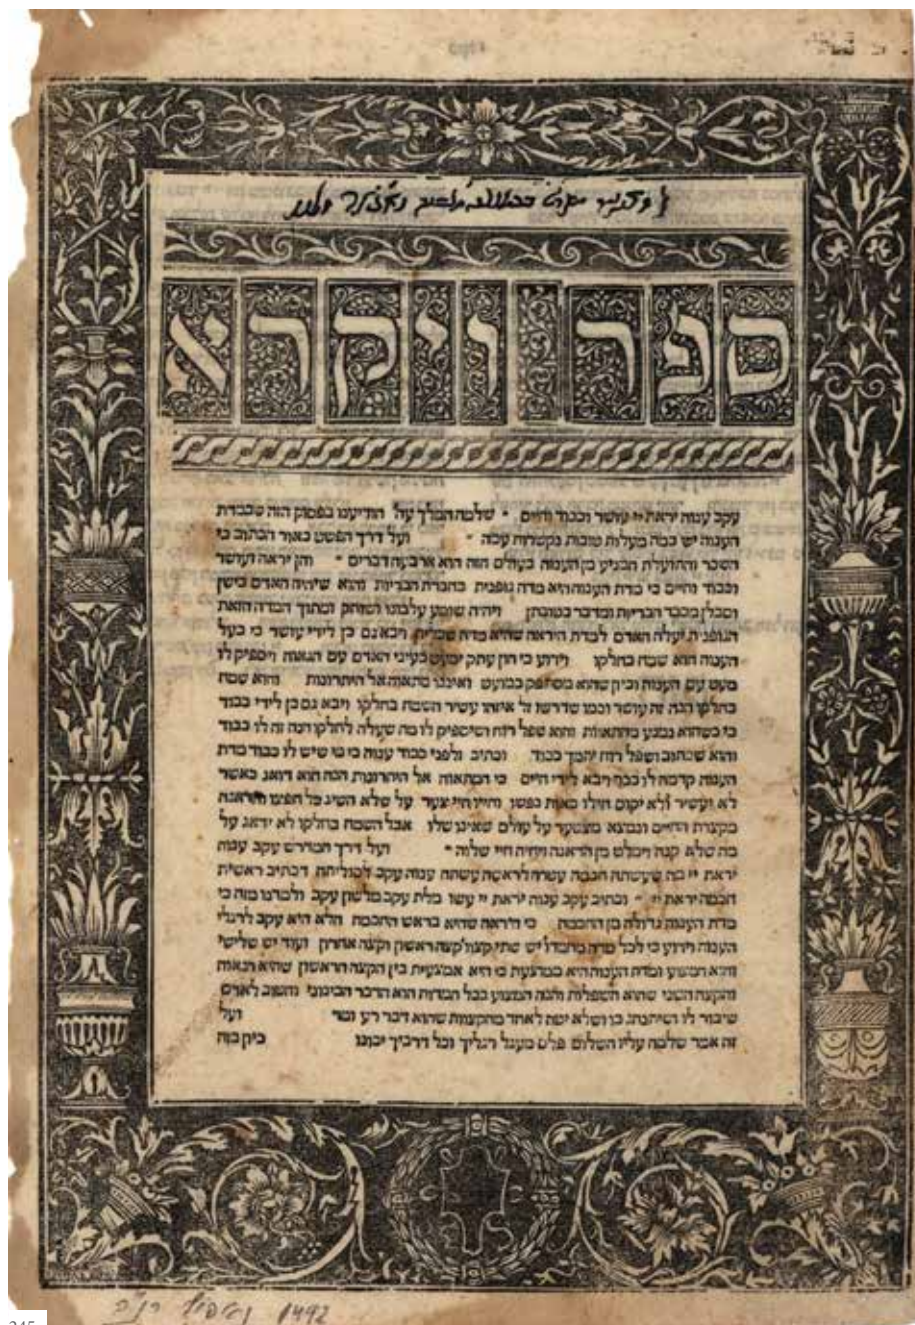 ספר ויקרא
עקב ענוה יראת יי עושר וכבוד וחיים " שלמה המלך ע״ה הודיענו בפסוק הזה שבמדת
הענוה יש כמה מעלות טובות נקשרות עמה " ועל דרך הפשט באור הכתוב כי
השכר והתועלת המגיע מן הענוה בעולם הזה הוא ארבעה דברים " והן יראה ועושר
וכבוד וחיים כי מדת הענוה היא מדה גופנית בחברת הבריות והוא שיהיה האדם ביישן
וסבלן מכבד הבריות ומדבר בטובתן ויהיה שומע עלבונו ושותק ומתוך המדה הזאת
הגופנית יעלה האדם למדת היראה שהיא מדה שכלית ויבא גם כן לידי עושר כי בעל
הענוה הוא שמח בחלקו וידוע כי הון עתק ימעט בעיני האדם עם הגאוה ויספיק לו
מעט עם הענוה וכיון שהוא מסתפק במועט ואיננו מתאוה אל היתרונות והוא שמח
בחלקו הנה זה עושר וכמו שדרשו זל איזהו עשיר השמח בחלקו ויבא גם כן לידי כבוד
כי כשהוא נמנע מהתאוות והוא שפל רוח ויספיק לו מה שעלה לחלקו הנה זה לו כבוד
והוא שכתוב ושפל רוח יתמך כבוד וכתיב ולפני כבוד ענוה כי מי שיש לו כבוד מדת
הענוה קדמה לו בכך ויבא לידי חיים כי המתאוה אל היתרונות הנה הוא דואג כאשר
לא יעשיר ולא יקום חילו כאות נפשו וחייו חיי צער על שלא השיג כל חפצו והדאגה
מקצרת החיים ונמצא מצטער על עולם שאינו שלו אבל השמח בחלקו לא ידאג על
מה שלא קנה וימלט מן הדאגה ויחיה חיי שלוה " ועל דרך המדרש עקב ענוה
יראת יי מה שעשתה חכמה עטרה לראשה עשתה ענוה עקב לסוליתה דכתיב ראשית
חכמה יראת יי " וכתיב עקב ענוה יראת יי עשו מלת עקב מלשון עקב ולמדנו מזה כי
מדת הענוה גדולה מן החכמה כי היראה שהיא בראש החכמה הלא היא עקב לרגלי
הענוה וידוע כי לכל מדה מהמדו׳ יש שתי קצוו׳ קצה ראשון וקצה אחרון ועוד יש שלישי
והוא המצוע ומדת הענוה היא ממוצעת כי היא אמצעית בין הקצה הראשון שהיא הגאוה
והקצה השני שהוא השפלות והנה המצוע בכל המדות הוא הדבר הבינוני והטוב לאדם
שיבור לו ושיתנהג בו ושלא יטה לאחד מהקצוות שהוא דבר רע ומר ועל
זה אמר שלמה עליו השלום פלס מעגל רגליך וכל דרכיך יכונו כיון בזה
1492
245